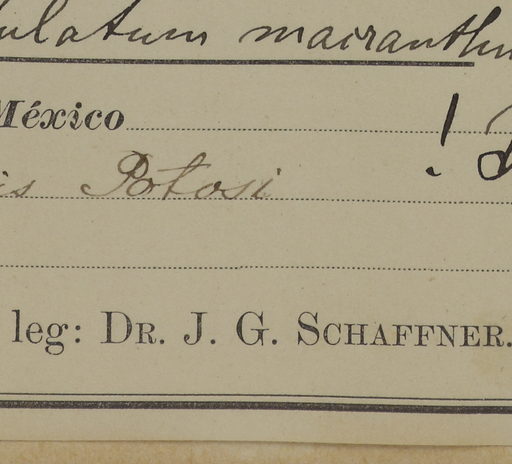 ulatum macranthu
México ! D
is Potosi
leg: DR. J. G. SCHAFFNER.